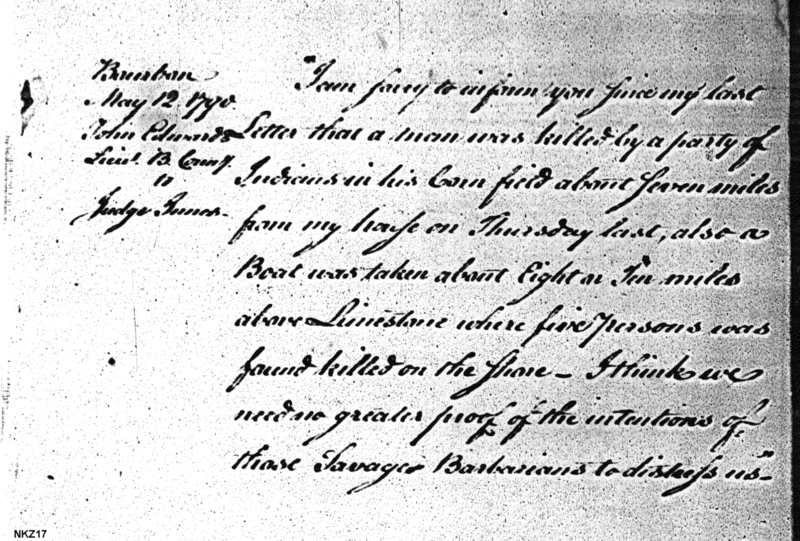 Bourbon
May 12. 1790.
John Edwards
Lieut. B. County.
to
Judge Innes.
"I am sorry to inform you since my last
Letter that a man was killed by a party of
Indians in his Corn field about seven miles
from my house on Thursday last, also a
Boat was taken about Eight or Ten miles
above Limestone where five persons was
found killed on the shore — I think we
need no greater proof of the intentions of
those Savage Barbarians to distress us"—
NKZ17